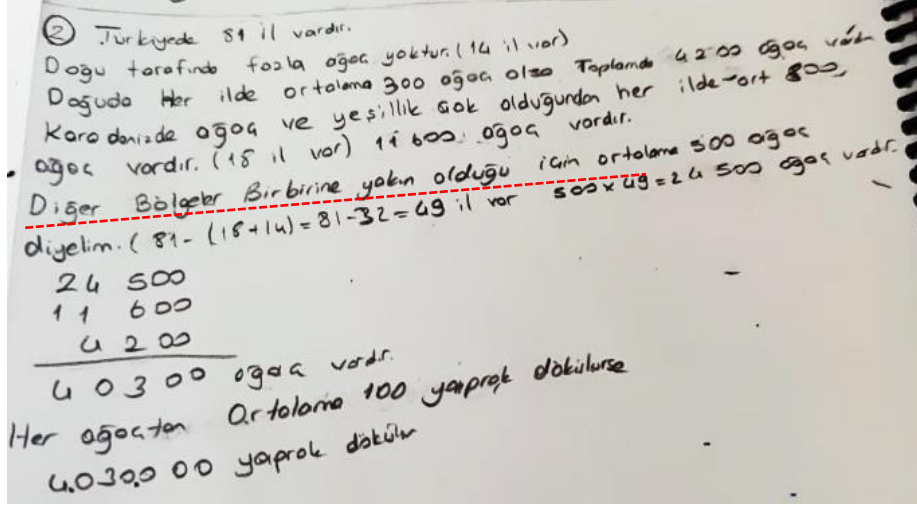 ② Türkiyede 81 il vardır.
Doğu tarafında fazla ağaç yoktur. (14 il var)
Doğuda Her ilde ortalama 300 ağaç olsa Toplamda 4200 ağaç vardır
Karadenizde ağaç ve yeşillik çok olduğundan her ilde ort 800
ağaç vardır. (18 il var) 11 600 ağaç vardır.
Diğer Bölgeler Birbirine yakın olduğu için ortalama 500 ağaç
diyelim. ( 81 - (18+14) = 81-32 = 49 il var 500 x 49 = 24 500 ağaç vardır.
24 500
11 600
4 200
40300 ağaç vardır.
Her ağaçtan Ortalama 100 yaprak dökülürse
4.030.000 yaprak dökülür